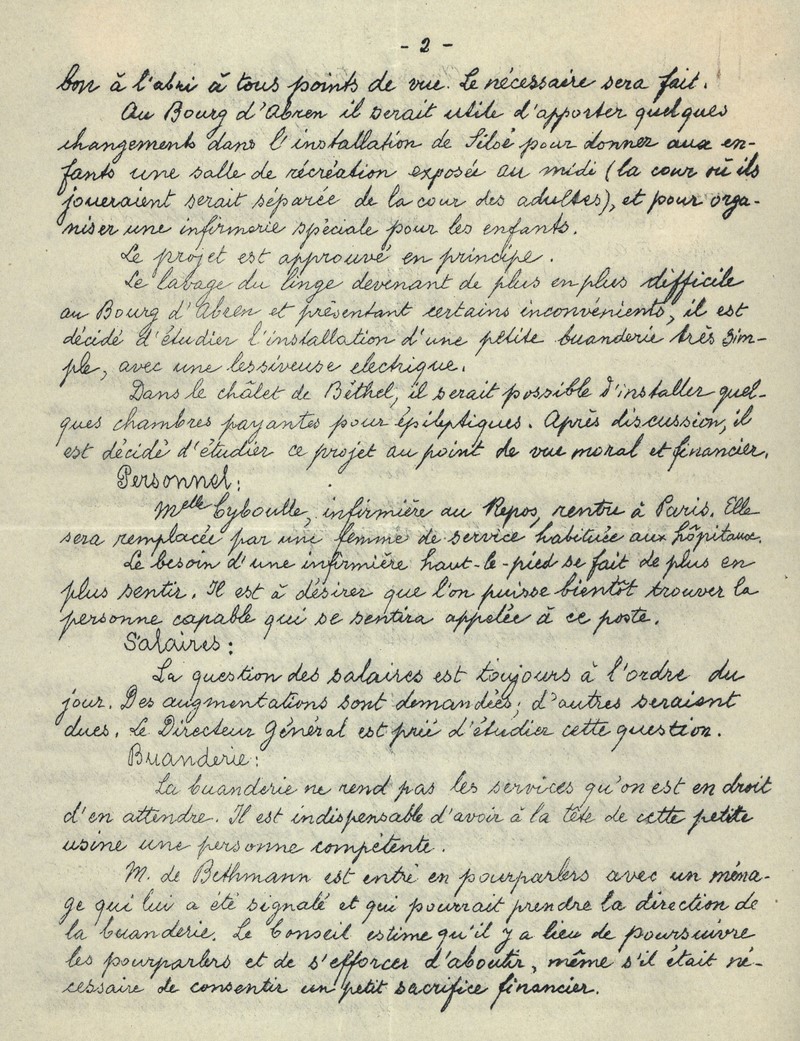 - 2 -
bon à l'abri à tous points de vue. Le nécessaire sera fait.
Au Bourg d'Abren il serait utile d'apporter quelques
changements dans l'installation de Siloé pour donner aux en-
fants une salle de récréation exposée au midi (la cour où ils
joueraient serait séparée de la cour des adultes), et pour orga-
niser une infirmerie spéciale pour les enfants.
Le projet est approuvé en principe.
Le lavage du linge devenant de plus en plus difficile
au Bourg d'Abren et présentant certains inconvénients, il est
décidé d'étudier l'installation d'une petite buanderie très sim-
ple, avec une lessiveuse electrique.
Dans le châlet de Béthel, il serait possible d'installer quel-
ques chambres payantes pour épileptiques. Après discussion, il
est décidé d'étudier ce projet au point de vue moral et financier.
Personnel:
Melle Cyboulle, infirmière au Repos, rentre à Paris. Elle
sera remplacée par une femme de service habituée aux hôpitaux.
Le besoin d'une infirmière haut-le-pied se fait de plus en
plus sentir. Il est à désirer que l'on puisse bientôt trouver la
personne capable qui se sentira appelée à ce poste.
Salaires:
La question des salaires est toujours à l'ordre du
jour. Des augmentations sont demandées; d'autres seraient
dues. Le Directeur Général est prié d'étudier cette question.
Buanderie:
La buanderie ne rend pas les services qu'on est en droit
d'en attendre. Il est indispensable d'avoir à la tête de cette petite
usine une personne compétente.
M. de Bethmann est entré en pourparlers avec un ména-
ge qui lui a été signalé et qui pourrait prendre la direction de
la buanderie. Le Conseil estime qu'il y a lieu de poursuivre
les pourparlers et de s'efforcer d'aboutir, même s'il était né-
cessaire de consentir un petit sacrifice financier.